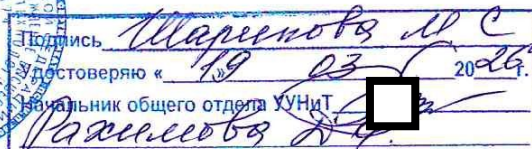 Подпись Шарипова М С
Удостоверяю « 19 » 03 2026 г.
Начальник общего отдела УУНиТ
Рахимова